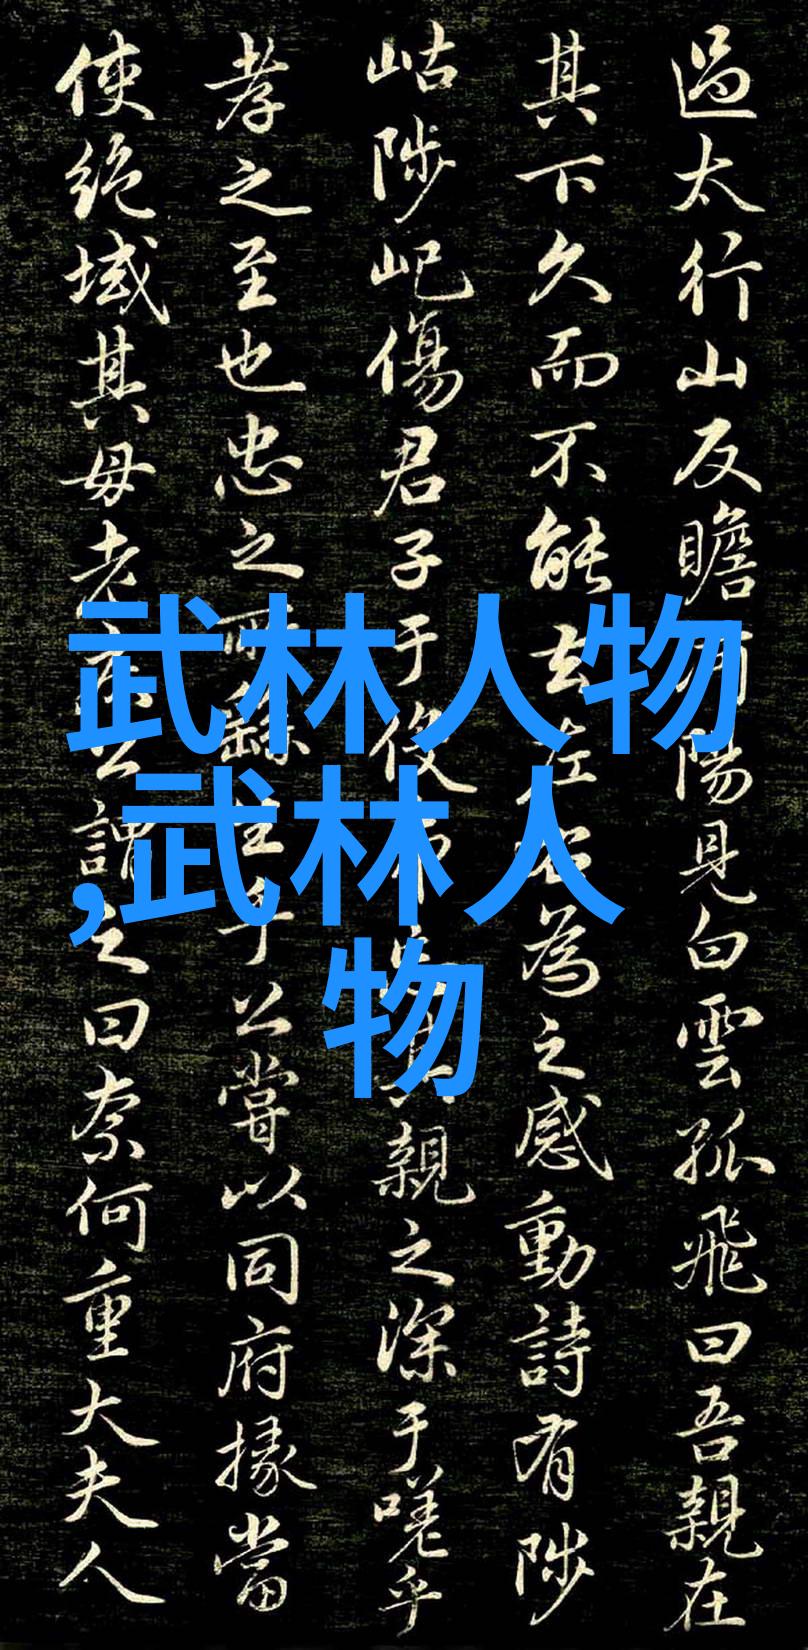 武林人物
,武林人
物
過太行山反瞻陽見白雲孤飛曰吾親在
其下久而不能去左右為之感動詩有陟
岵陟屺傷君子于役親之深于嗟乎
孝之至也忠之所繇生乎公嘗以同府掾當
使絕域其母老疾公謂之曰奈何重大夫人